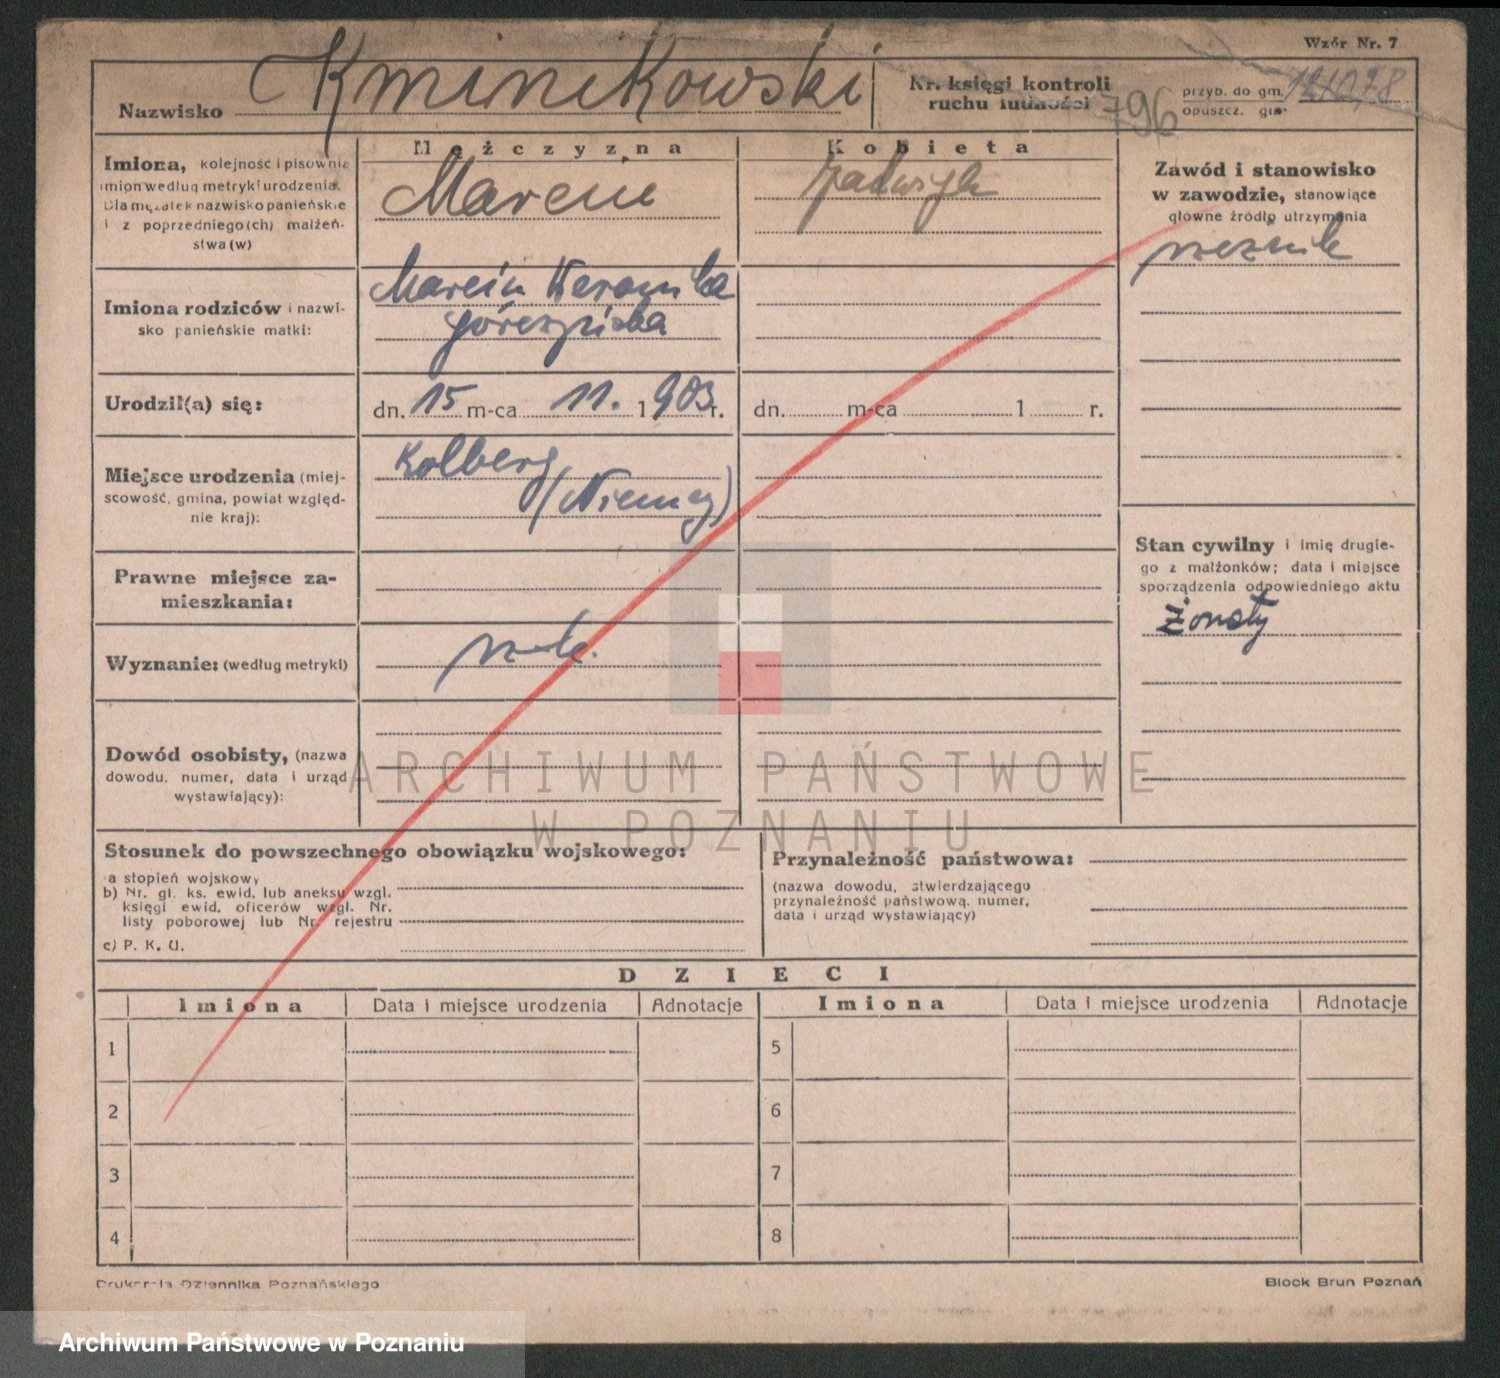 Wzór Nr. 7
Nazwisko Kminikowski
Nr. księgi kontroli
ruchu ludności 796
przyb. do gm.
opuszcz. gm.
Imiona, kolejność i pisownia
imion według metryki urodzenia.
Dla mężatek nazwisko panieńskie
i z poprzedniego(ch) małżeń-
stwa(w)
Mężczyzna
Marcin
Kobieta
Jadwiga
Zawód i stanowisko
w zawodzie, stanowiące
główne źródło utrzymania
Imiona rodziców i nazwi-
sko panieńskie matki:
Marcin Weronika
Urodził(a) się:
dn. 15 m-ca 11. 1903 r.
dn. m-ca 1 r.
Miejsce urodzenia (miej-
scowość, gmina, powiat względ-
nie kraj):
Kolberg
(Niemcy)
Prawne miejsce za-
mieszkania:
Stan cywilny i imię drugie-
go z małżonków; data i miejsce
sporządzenia odpowiedniego aktu
żonaty
Wyznanie: (według metryki)
Dowód osobisty, (nazwa
dowodu, numer, data i urząd
wystawiający):
ARCHIWUM PAŃSTWOWE
W POZNANIU
Stosunek do powszechnego obowiązku wojskowego:
a stopień wojskowy
b) Nr. gl. ks. ewid. lub aneksu wzgl.
księgi ewid. oficerów wzgl. Nr.
listy poborowej lub Nr. rejestru
c) P. K. U.
Przynależność państwowa:
(nazwa dowodu, stwierdzającego
przynależność państwową, numer,
data i urząd wystawiający)
DZIECI
Imiona Data i miejsce urodzenia Adnotacje Imiona Data i miejsce urodzenia Adnotacje
1 5
2 6
3 7
4 8
Drukarnia Dziennika Poznańskiego
Block Brun Poznań
Archiwum Państwowe w Poznaniu